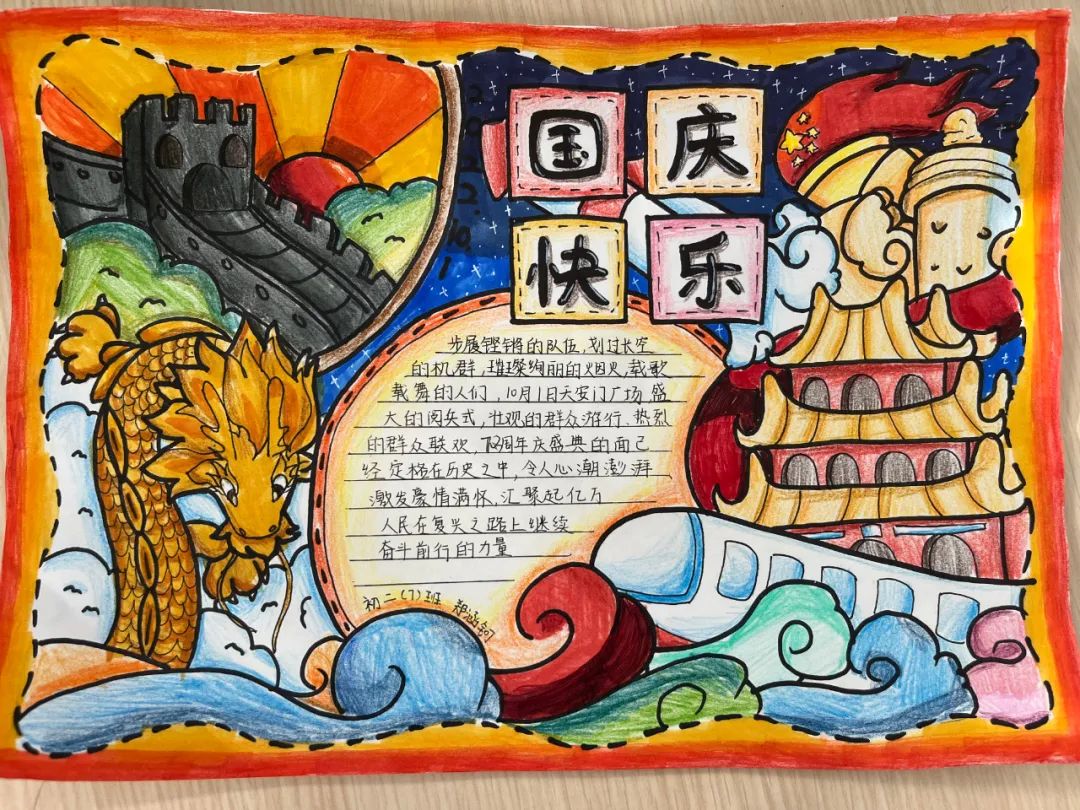 国庆
快乐
10.
1
步履铿锵的队伍,划过长空
的机群,璀璨绚丽的烟火,载歌
载舞的人们,10月1日天安门广场盛
大的阅兵式,壮观的群众游行、热烈
的群众联欢,72周年庆盛典的面已
经定格在历史之中,令人心潮澎湃
激发豪情满怀,汇聚起亿万
人民在复兴之路上继续
奋斗前行的力量
初二(7)班